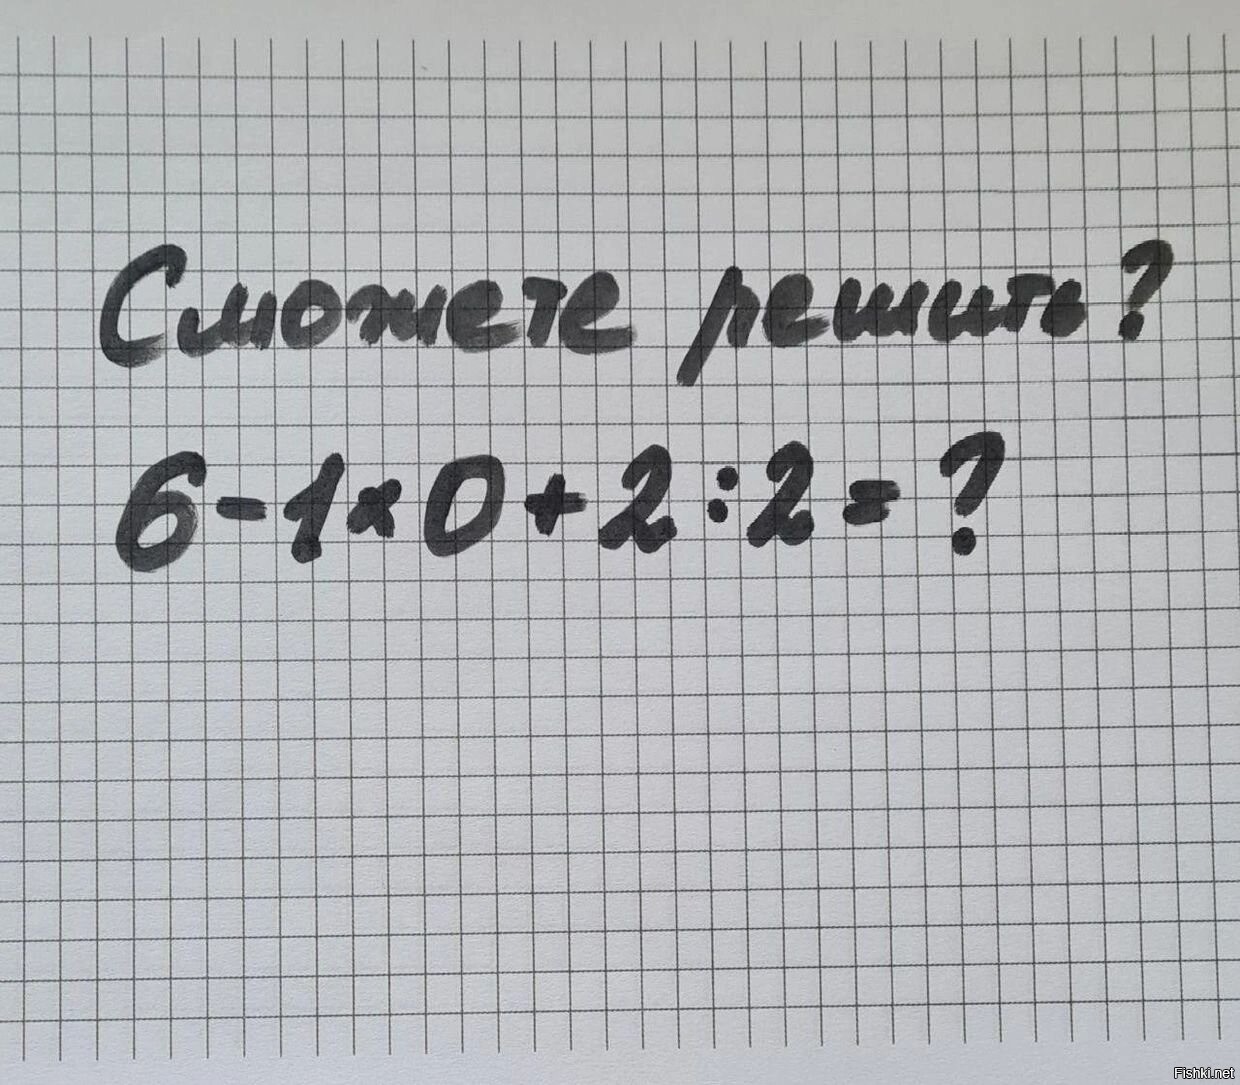 Сможете решить?
6-1×0+2:2=?
Fishki.net